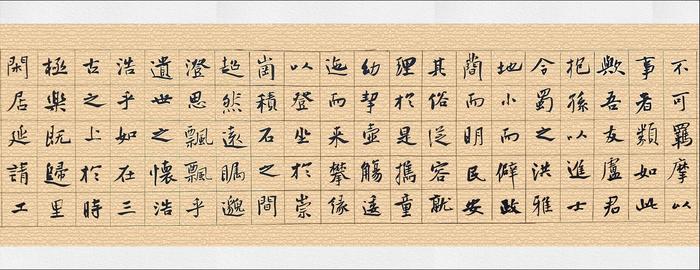 不可羈摩以
事者類如此
歟吾友盧君
抱孫以進士
令蜀之洪雅
地小而僻政
簡而明民安
其俗從容就
理於是攜童
幼挈壺觴逶
迤而来攀緣
以登坐於崇
崗積石之間
超然遠矚邈
澄思飄飄乎
遺世之懷浩
浩乎如在三
古之上於時
極樂既歸里
閑居延請工